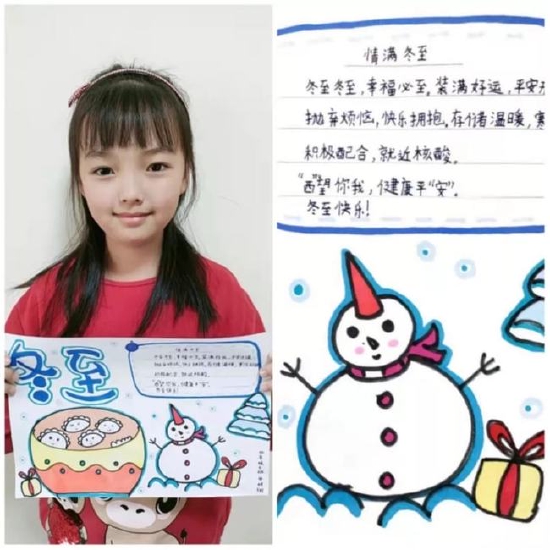 冬至
情满冬至
冬至冬至,幸福必至。装满好运,平安
抛弃烦恼,快乐拥抱。存储温暖,寒
积极配合,就近核酸。
"西"望你我,健康平"安"。
冬至快乐!